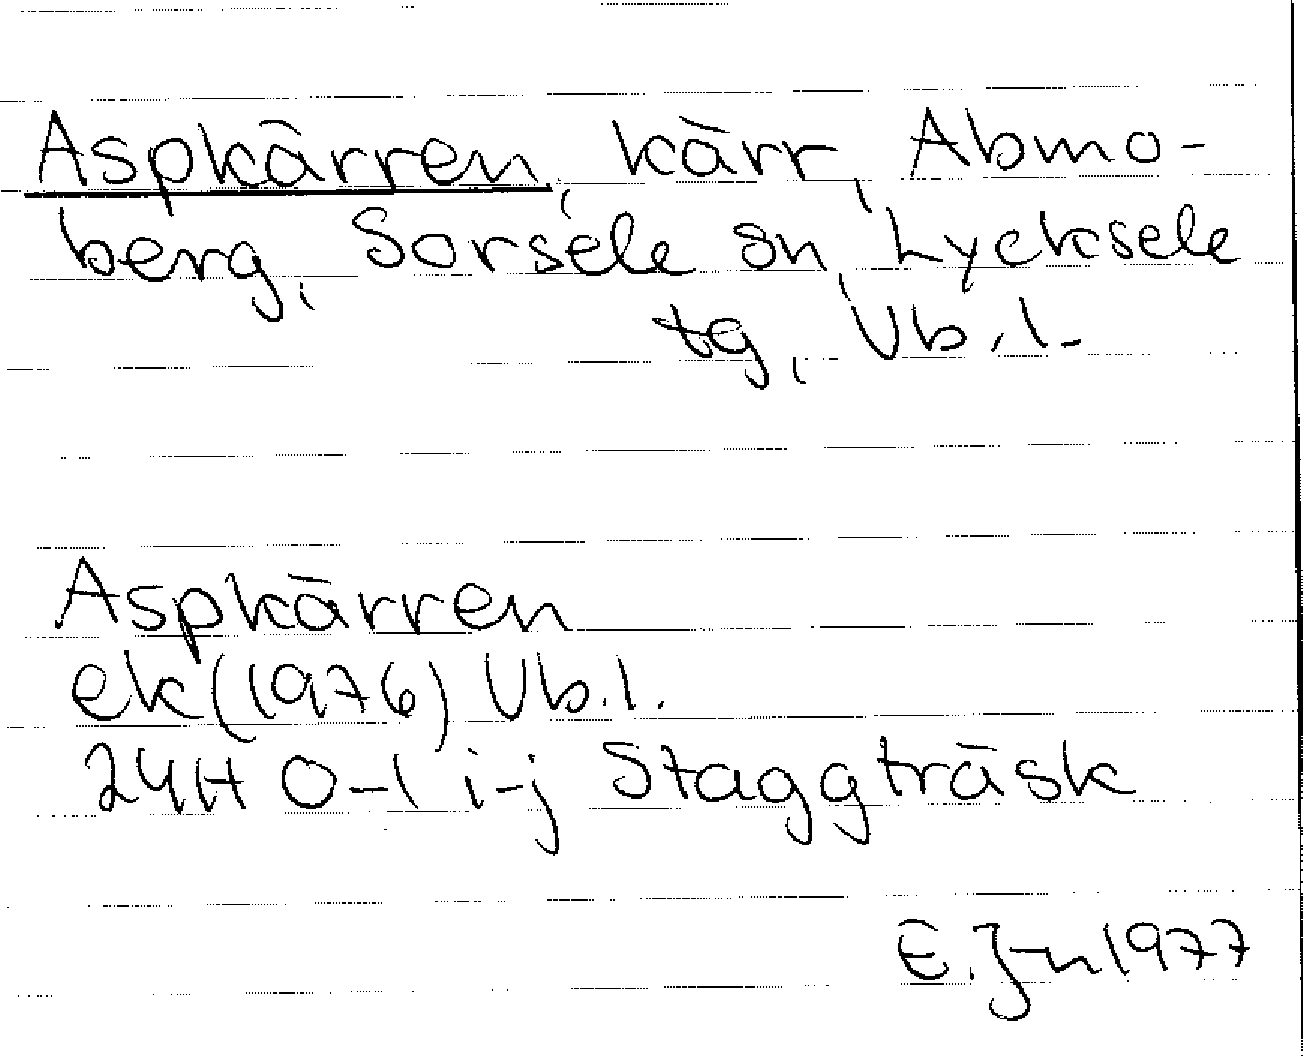 Aspkärren, kärr, Abmo-
berg, Sorsele sn, Lycksele
tg, Vb.l.
Aspkärren
ek (1976) Vb.l.
24H 0-1 i-j Staggträsk
E. J-n 1977